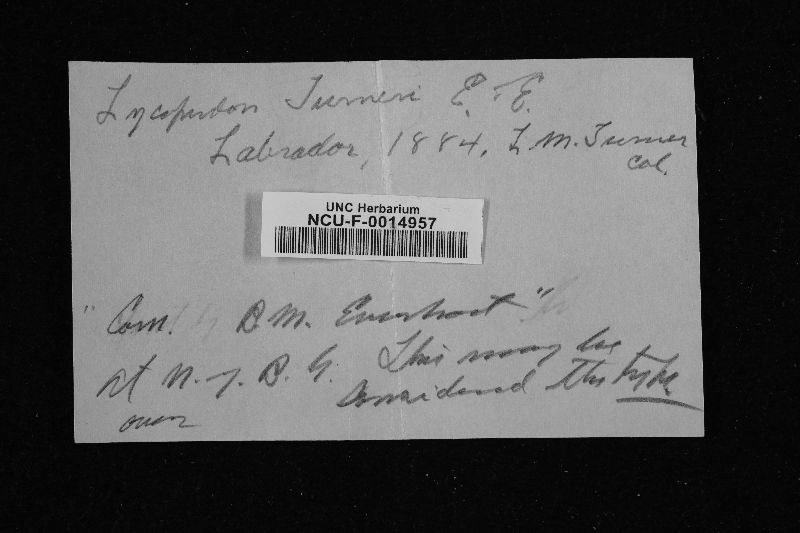 Lycoperdon Turneri E. & E.
Labrador, 1884. L. M. Turner
Col.
UNC Herbarium
NCU-F-0014957
"Com. B. M. Everhart"
At N. Y. B. G. This may be
considered the type
over